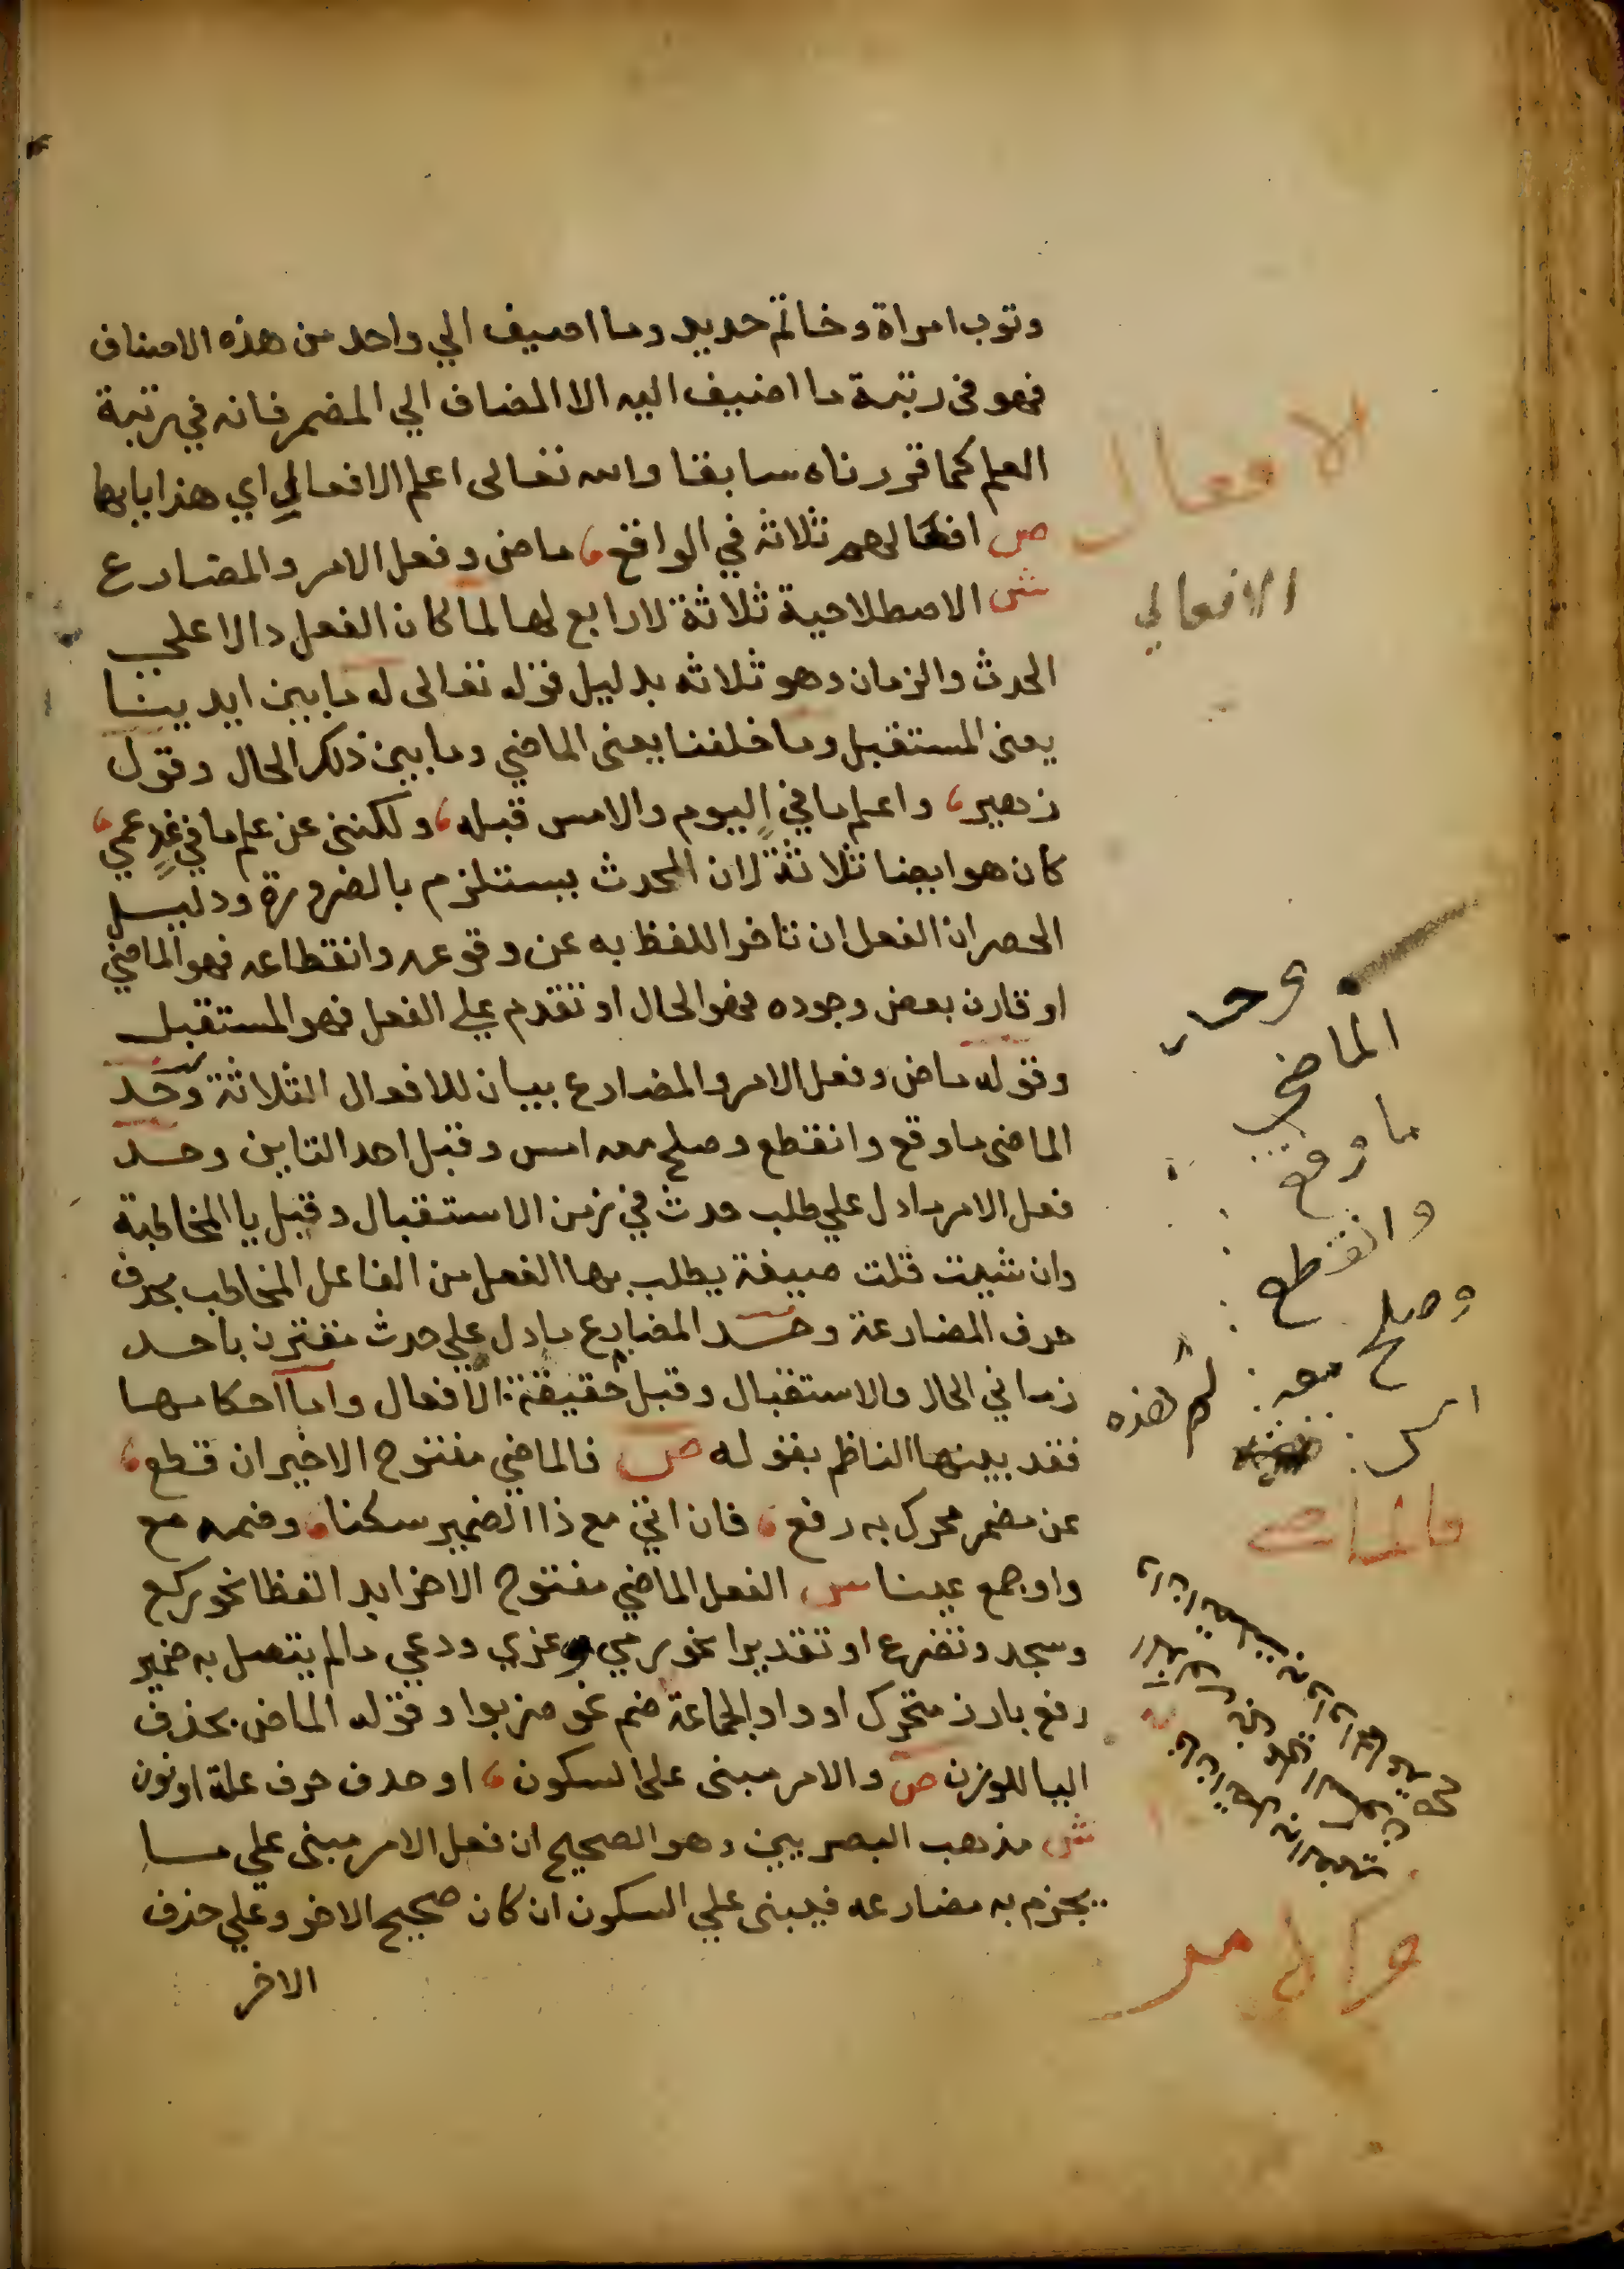 وثوب امراة وخاتم حديد وما اضيف الي واحد من هذه الاصناف
فهو في رتبة ما اضيف اليه الا المضاف الي المضمر فانه في رتبة
العلم كما قررناه سابقا والله تعالى اعلم الافعال اي هذا بابها
ص افعالهم ثلاثة في الواقع ، ماض وفعل الامر والمضارع
ش الاصطلاحية ثلاثة لا رابع لها لما كان الفعل دالا علي
الحدث والزمان وهو ثلاثه بدليل قوله تعالى له ما بين ايدينا
يعنى المستقبل وما خلفنا يعنى الماضي وما بين ذلك الحال وقول
زهير ، واعلم ما في اليوم والامس قبله ، ولكنني عن علم ما في غدٍ عمي ،
كان هو ايضا ثلاثة لان الحدث يستلزم بالضرورة ودليل
الحصر ان الفعل ان تاخر اللفظ به عن وقوعه وانقطاعه فهو الماضي
او قارن بعض وجوده فهو الحال او تقدم علي الفعل فهو المستقبل
وقوله ماض وفعل الامر والمضارع بيان للافعال الثلاثة وحد
الماضى ما وقع وانقطع وصلح معه امس وقبل احد التاين وحد
فعل الامر ما دل علي طلب حدث في زمن الاستقبال وقبل يا المخاطبة
وان شيت قلت صيغة يطلب بها الفعل من الفاعل المخاطب بحذف
حرف المضارعة وحد المضارع ما دل علي حدث مقترن باحد
زماني الحال والاستقبال وقبل حقيقة الافعال واما احكامها
فقد بينها الناظم بقوله ص فالماضي مفتوح الاخير ان قطع ،
عن مضمر محرك به رفع ، فان اتي مع ذا الضمير سكنا ، وضمه مع
واو جمع عينا س الفعل الماضي مفتوح الاخر ابد الفظا نحو ركع
وسجد وتضرع او تقديرا نحو رمي وغزي ودعي مالم يتصل به ضمير
رفع بارز متحرك او واو الجماعة ضم نحو ضربوا وقوله الماض بحذف
اليا للوزن ص والامر مبنى على السكون ، او حذف حرف علة او نون
ش مذهب البصريين وهو الصحيح ان فعل الامر مبنى علي ما
يجزم به مضارعه فيبنى علي السكون ان كان صحيح الاخر وعلي حذف
الاخر
الافعال
الافعالي
وحد
الماضي
ما وقع
وانقطع
وصلح
معه
امس
هذه
والامر